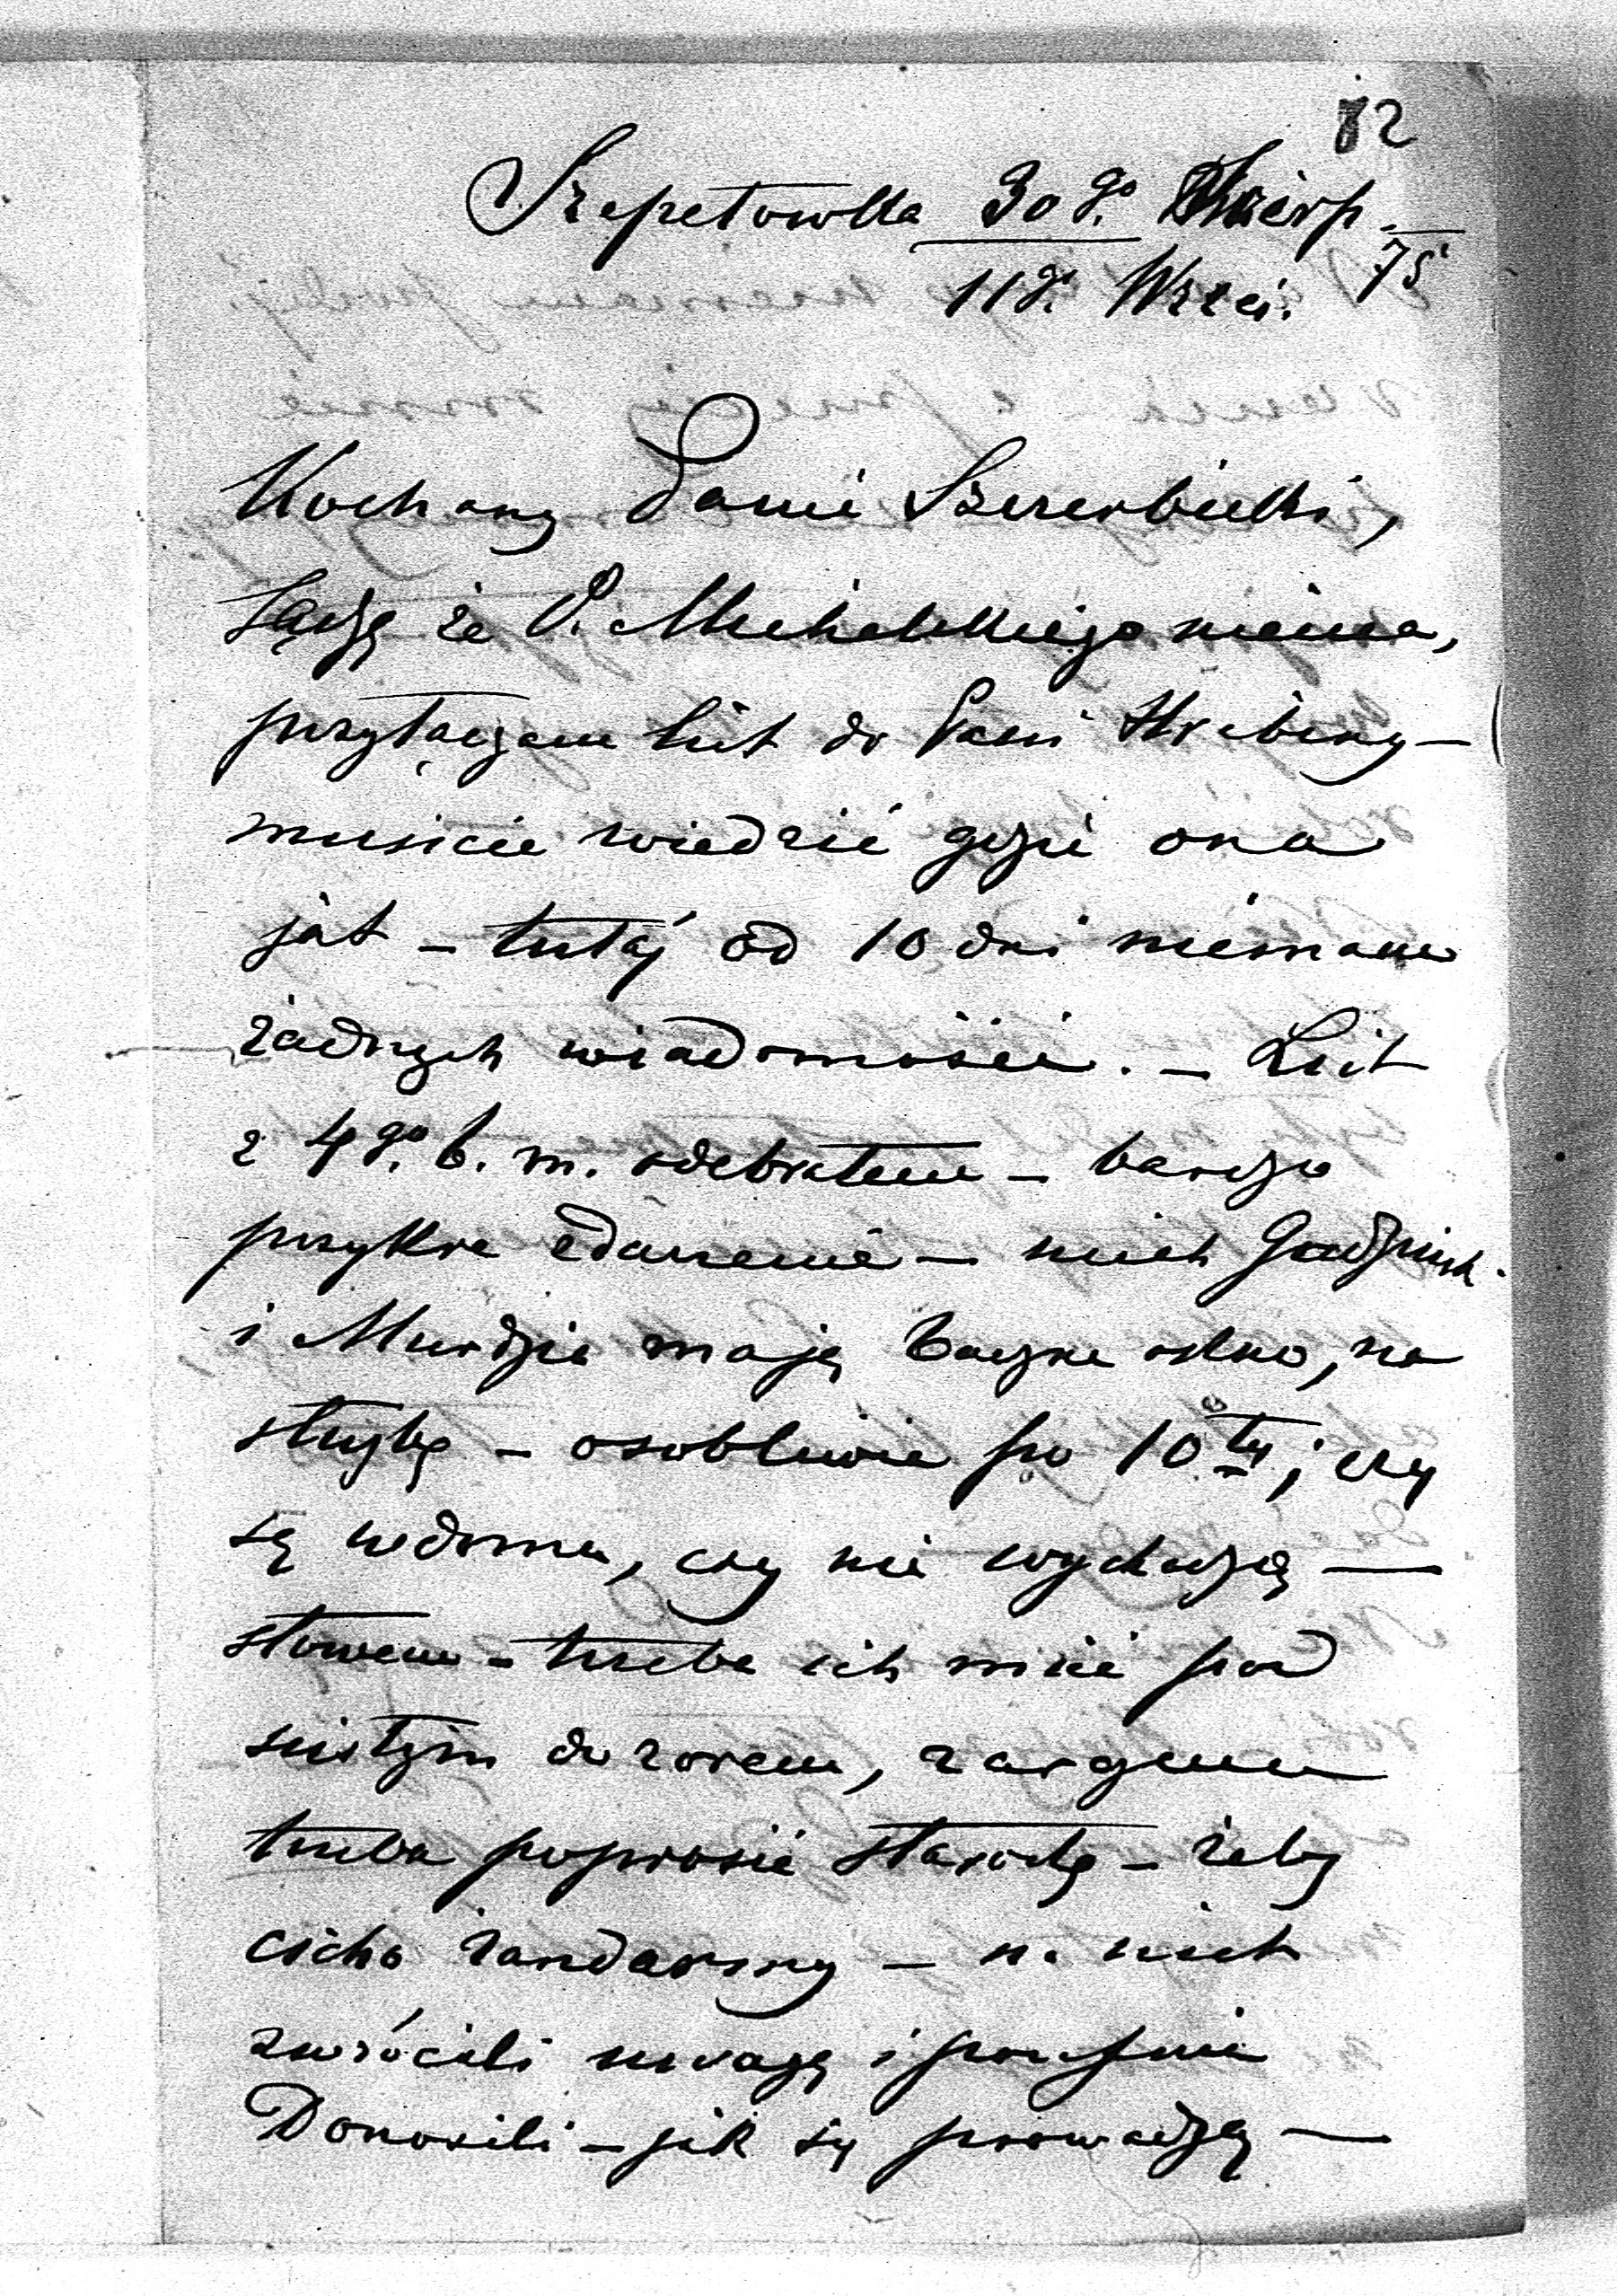 82
Szepetowka 30go Sierp. 75
11go Wrześ.
Kochany Panie Szczerbicki,
Sądzę że P. Michalskiego niema,
przyłączam list do Pani Hrabiny —
musicie wiedzić gdzie ona
jest — tutaj od 10 dni niemam
żadnych wiadomości. — List
z 4go b. m. odebrałem — bardzo
przykre zdarzenie — niech
i Murdzia mają baczne oko, na
służbę — osobliwie po 10ty; czy
są w domu, czy nie wychodzą —
słowem — trzeba ich mieć pod
ścisłym dozorem, zarazem
trzeba poprosić starostę — żeby
cicho żandarmy — n. nich
zwrócili uwagę i poufnie
Donosili — jak są prowadzą —